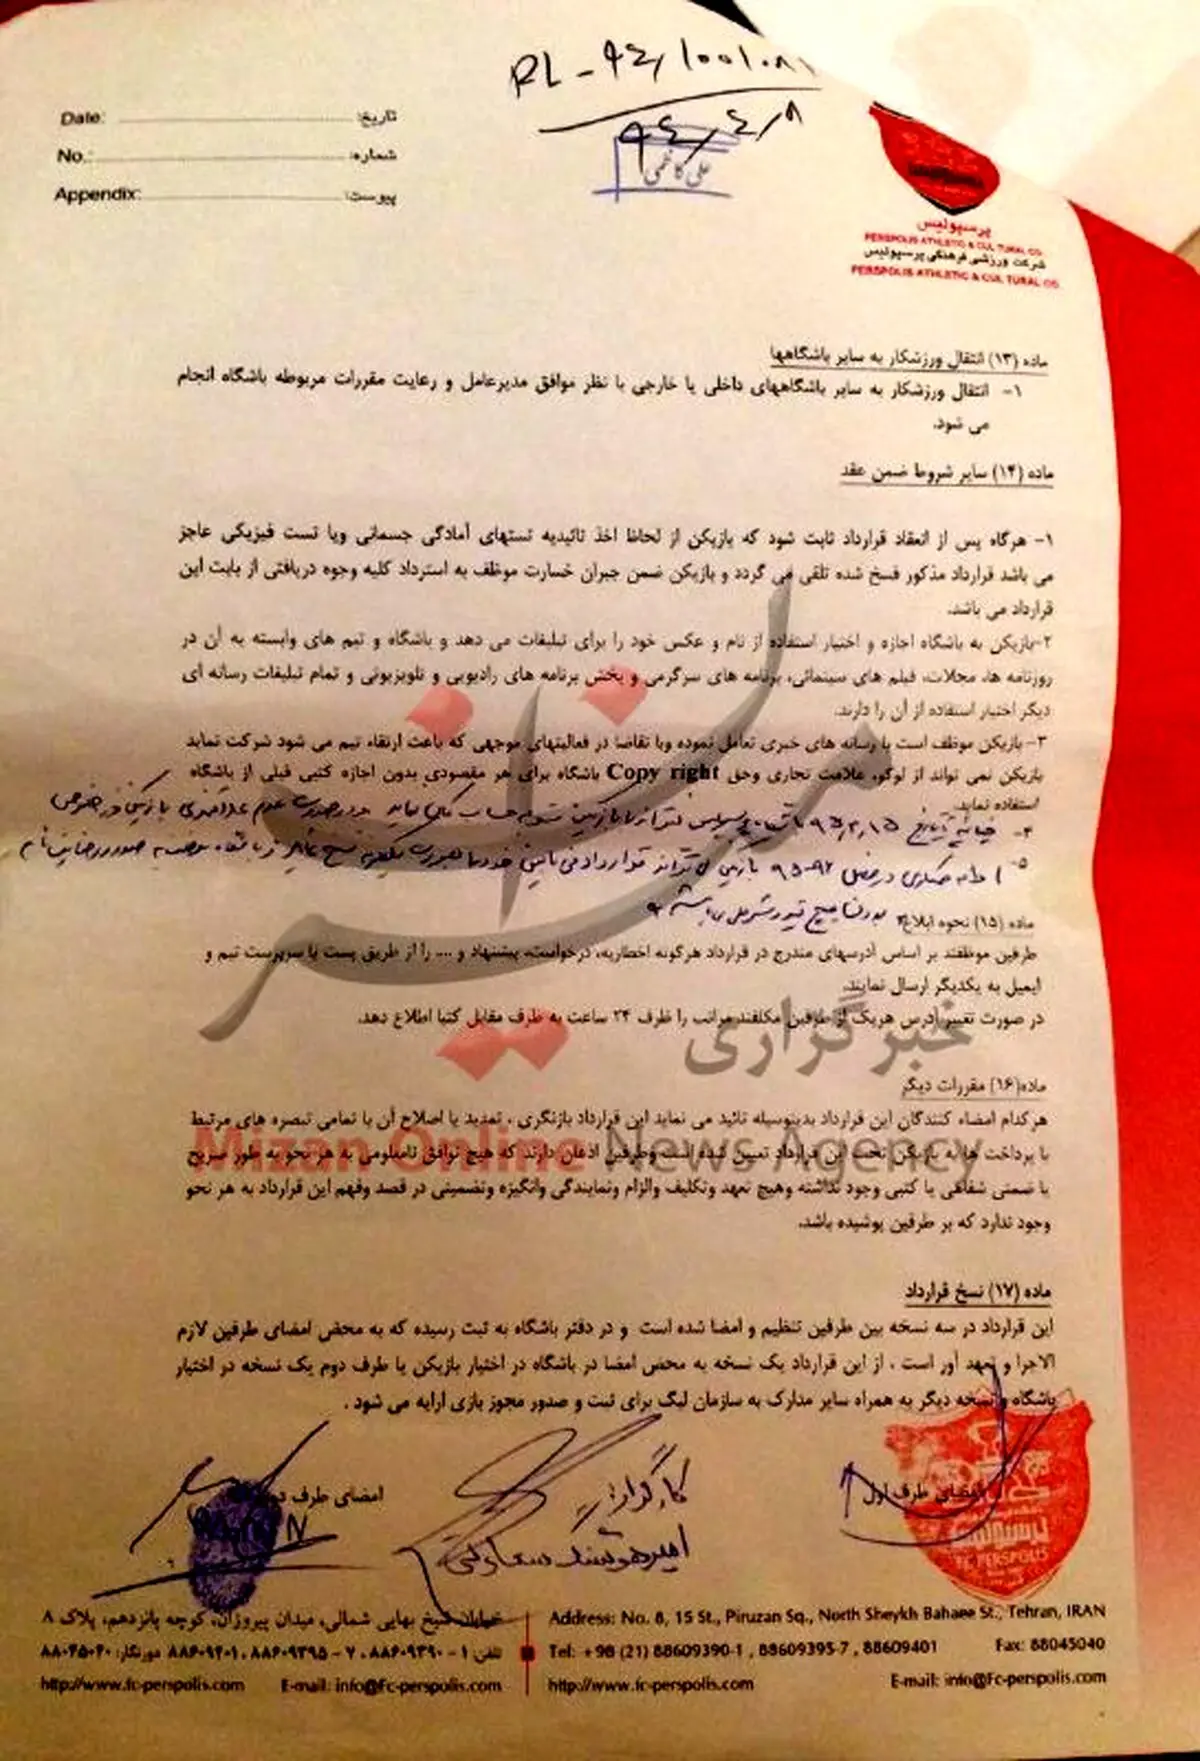 RL-94/100108
94/4/8
علی کاظمی
Date: تاریخ:
No.: شماره:
Appendix: پیوست:
پرسپولیس
PERSPOLIS ATHLETIC & CULTURAL CO.
شرکت ورزشی فرهنگی پرسپولیس
PERSPOLIS ATHLETIC & CULTURAL CO.
ماده (۱۳) انتقال ورزشکار به سایر باشگاهها
۱- انتقال ورزشکار به سایر باشگاههای داخلی یا خارجی با نظر موافق مدیرعامل و رعایت مقررات مربوطه باشگاه انجام
می شود.
ماده (۱۴) سایر شروط ضمن عقد
۱- هرگاه پس از انعقاد قرارداد ثابت شود که بازیکن از لحاظ اخذ تائیدیه تستهای آمادگی جسمانی ویا تست فیزیکی عاجز
می باشد قرارداد مذکور فسخ شده تلقی می گردد و بازیکن ضمن جبران خسارت موظف به استرداد کلیه وجوه دریافتی از بابت این
قرارداد می باشد.
۲-بازیکن به باشگاه اجازه و اختیار استفاده از نام و عکس خود را برای تبلیغات می دهد و باشگاه و تیم های وابسته به آن در
روزنامه ها، مجلات، فیلم های سینمائی، برنامه های سرگرمی و پخش برنامه های رادیویی و تلویزیونی و تمام تبلیغات رسانه ای
دیگر اختیار استفاده از آن را دارند.
۳- بازیکن موظف است با رسانه های خبری تعامل نموده وبا تقاضا در فعالیتهای موجهی که باعث ارتقاء تیم می شود شرکت نماید
بازیکن نمی تواند از لوگو، علامت تجاری وحق Copy right باشگاه برای هر مقصودی بدون اجازه کتبی قبلی از باشگاه
استفاده نماید.
۴-
۵- ادامه همکاری در فصل بازیکن می تواند قرارداد فی مابین
ماده (۱۵) نحوه ابلاغ
طرفین موظفند بر اساس آدرسهای مندرج در قرارداد هرگونه اخطاریه، درخواست، پیشنهاد و .... را از طریق پست یا سرپرست تیم و
ایمیل به یکدیگر ارسال نمایند.
در صورت تغییر آدرس هریک از طرفین مکلفند مراتب را ظرف ۲۴ ساعت به طرف مقابل کتبا اطلاع دهد.
میزان
خبرگزاری
Mizan Online News Agency
ماده(۱۶) مقررات دیگر
هرکدام امضاء کنندگان این قرارداد بدینوسیله تائید می نماید این قرارداد بازنگری ، تمدید یا اصلاح آن با تمامی تبصره های مرتبط
با پرداخت ها به بازیکن تحت این قرارداد تعیین شده است وطرفین اذعان دارند که هیچ توافق نامعلومی به هر نحو به طور صریح
یا ضمنی شفاهی یا کتبی وجود نداشته وهیچ تعهد وتکلیف والزام ونمایندگی وانگیزه وتضمینی در قصد وفهم این قرارداد به هر نحو
وجود ندارد که بر طرفین پوشیده باشد.
ماده (۱۷) نسخ قرارداد
این قرارداد در سه نسخه بین طرفین تنظیم و امضا شده است و در دفتر باشگاه به ثبت رسیده که به محض امضای طرفین لازم
الاجرا و تعهد آور است . از این قرارداد یک نسخه به محض امضا در باشگاه در اختیار بازیکن یا طرف دوم یک نسخه در اختیار
باشگاه و نسخه دیگر به همراه سایر مدارک به سازمان لیگ برای ثبت و صدور مجوز بازی ارایه می شود .
امضای طرف اول
کارگزار:
امیرهوشنگ سعادتی
امضای طرف
FC PERSPOLIS
خیابان شیخ بهایی شمالی، میدان پیروزان، کوچه پانزدهم، پلاک ۸
تلفن: ۱ - ۸۸۶۰۹۳۹۰ ، ۷ - ۸۸۶۰۹۳۹۵ ، ۸۸۶۰۹۴۰۱ دورنگار: ۸۸۰۴۵۰۴۰
http://www.fc-perspolis.com E-mail: info@Fc-perspolis.com
Address: No. 8, 15 St., Piruzan Sq., North Sheykh Bahaee St., Tehran, IRAN
Tel: +98 (21) 88609390-1 , 88609395-7 , 88609401 Fax: 88045040
http://www.fc-perspolis.com E-mail: info@Fc-perspolis.com